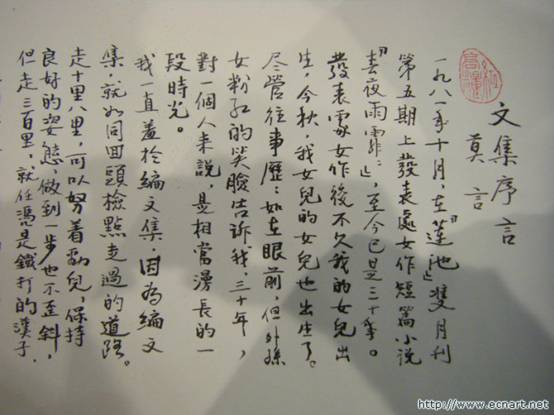 文集序言
莫言
一九八一年十月，在『蓮池』雙月刊
第五期上發表處女作短篇小说
『春夜雨霏霏』，至今已是三十年。
發表處女作後不久我的女兒出
生，今秋，我女兒的女兒也出生了。
尽管往事歷歷如在眼前，但外孫
女粉紅的笑臉告訴我，三十年，
對一個人来說，是相當漫長的一
段時光。
我一直羞於編文集，因為編文
集，就如同回頭檢點走過的道路。
走十里八里，可以努着勁兒，保持
良好的姿態，做到一步也不歪斜，
但走三百里，就任憑是鐵打的漢子，
http://www.ecnart.net